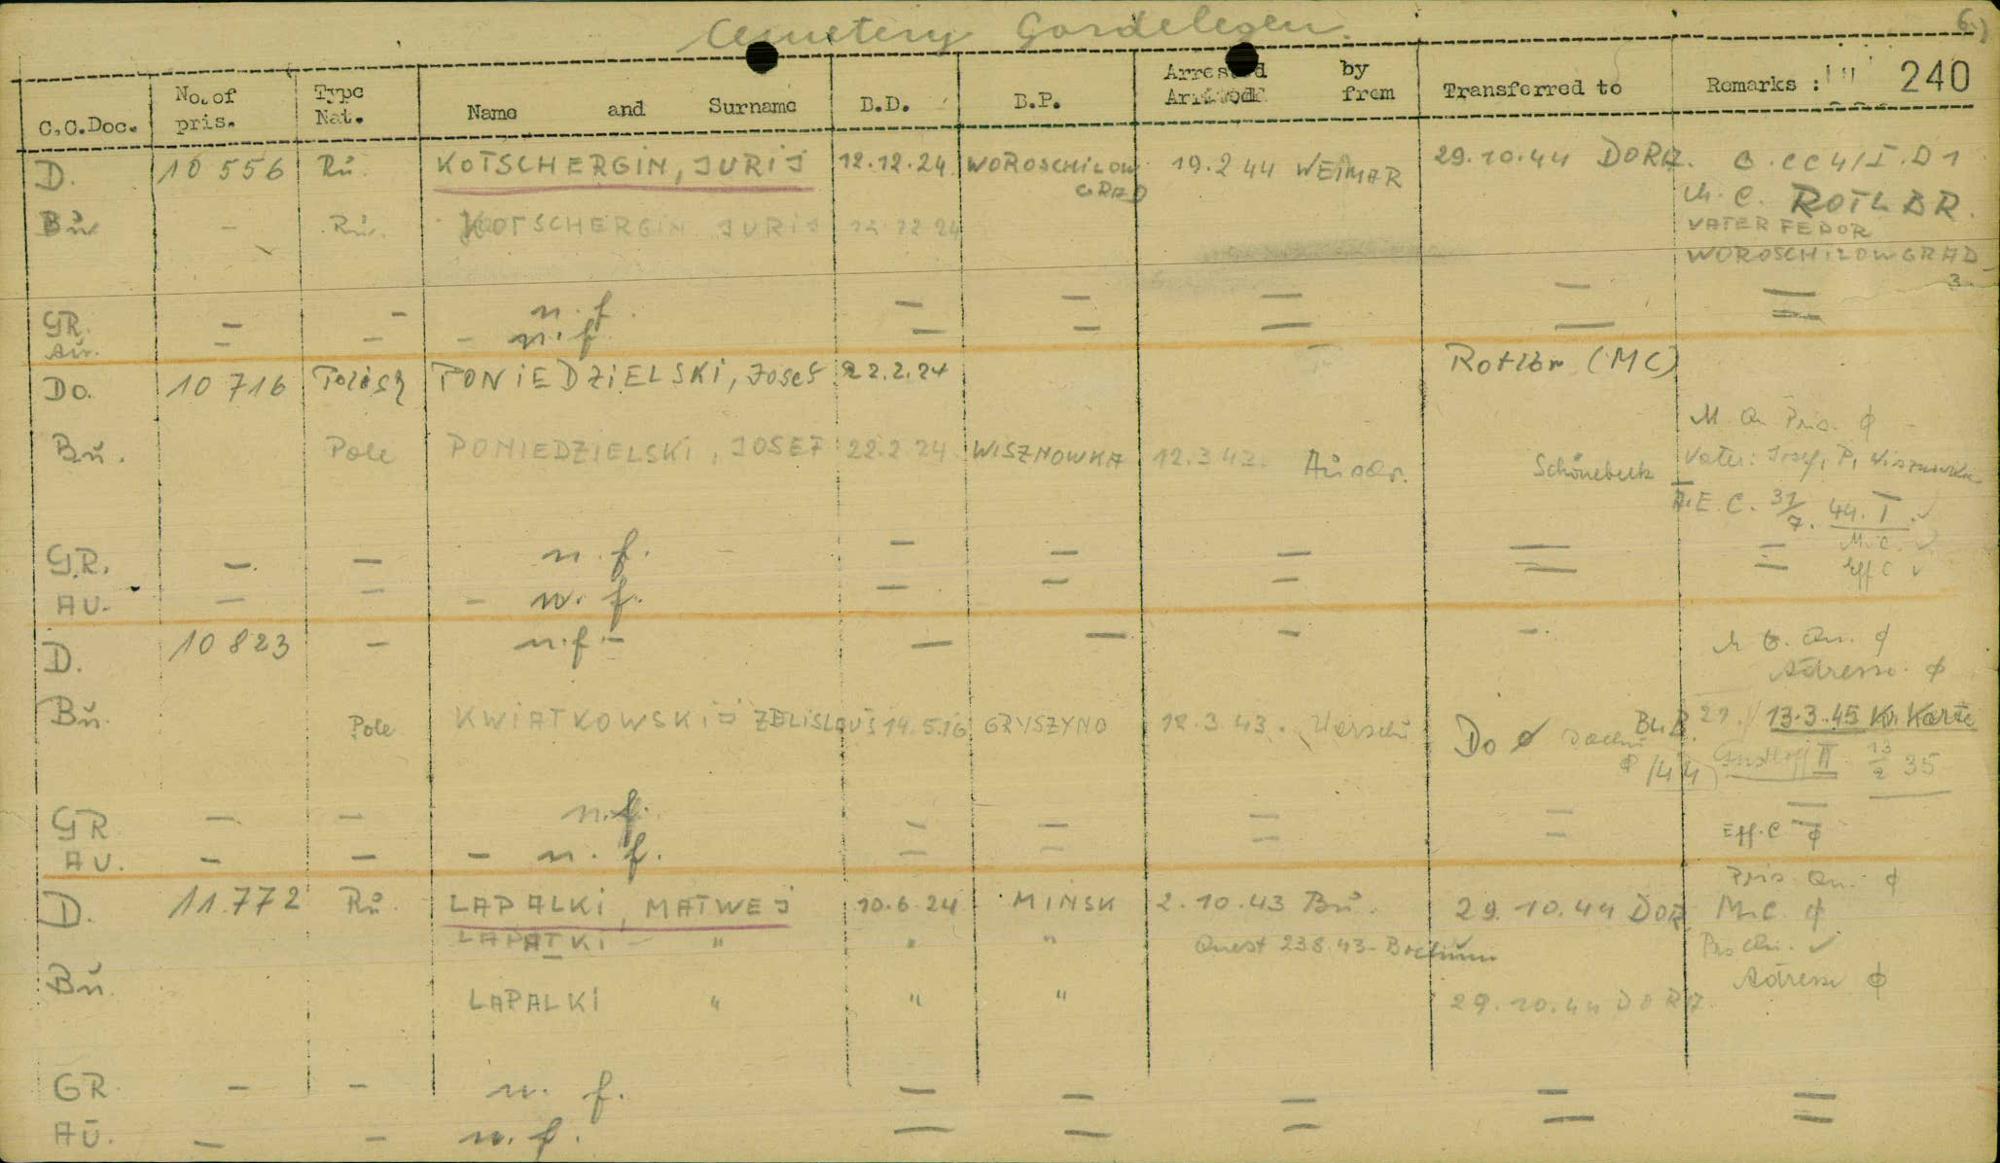 Cemetery Gardelegen.
6)
C.C.Doc. No.of pris. Type Nat. Name and Surname B.D. B.P. Arrested Arrived by from Transferred to Remarks : 240
D. 10 556 Ru. KOTSCHERGIN, JURIJ 12.12.24 WOROSCHILOW GRAD 19.2 44 WEIMAR 29.10.44 DORA. CC4/I.D1
M. C. ROTLBR.
Bu. - Ru. KOTSCHERGIN JURIJ 12.12.24 VATER FEDOR
WOROSCHILOWGRAD
3
GR. - - n. f. - - - - -
Au. - - - n. f. - - - - -
Do. 10 716 Polisch PONIEDZIELSKI, Josef 22.2.24 Rotlbr (MC)
M. Qu Pris. ϕ -
Bu. Pole PONIEDZIELSKI, JOSEF 22.2.24 WISZNOWKA 12.3.43. Schönebeck Vater: Josef, P, Wisznowka
A.E.C. 31/7. 44. I ✓
M.C. ✓
Eff C ✓
GR. - - n. f. - - - - - =
AU. - - - n. f. - - -
D. 10 823 - n.f. - - - - -. Qu. ϕ
Adresse. ϕ
Bu. Pole KWIATKOWSKI ZELISLAUS 14.5.16 GRYSZYNO 12.3.43. Do ϕ Bu.B. 21. 13.3.45 Kr. Karte
ϕ /44) Gustloff II 13/2 35
GR - - n.f. - - - - -
Eff.C ϕ
AU. - - - n. f. - - - -
Pris. Qu. ϕ
D. 11.772 Ru. LAPALKI, MATWEJ 10.6.24 MINSK 2.10.43 Bu. 29.10.44 DOR M.C. ϕ
LAPATKI - " " " 23.8.43 - Bochum ✓
Adresse ϕ
Bu. LAPALKI " " " 29.10.44 DORA.
GR - - n. f. - - - - -
AU. - - n. f. - - - - -